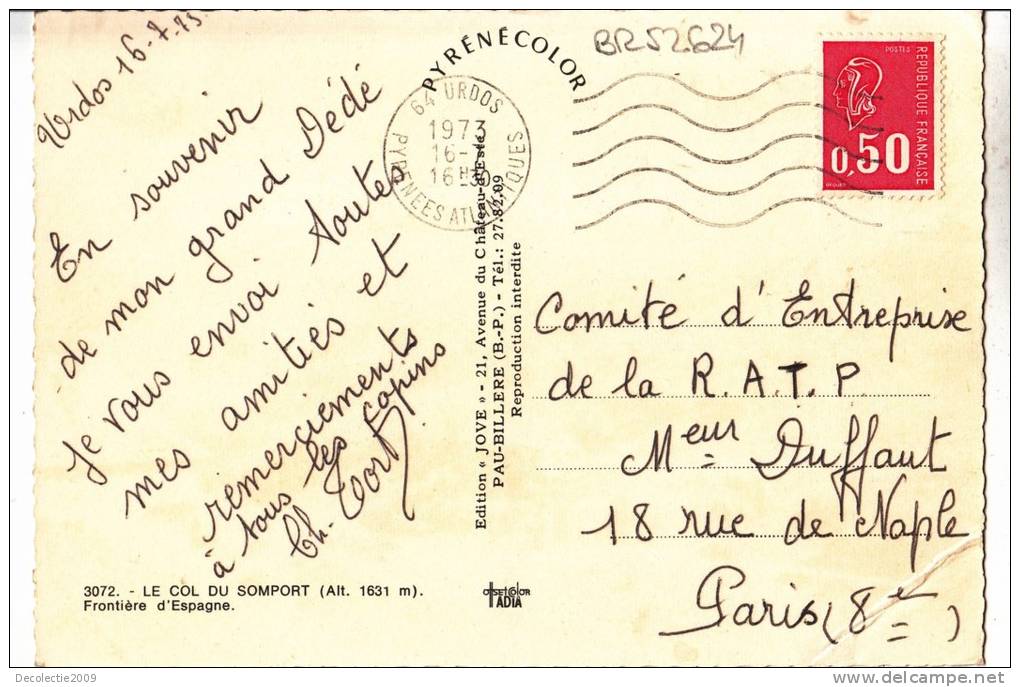 Urdos 16-7-73
En souvenir
de mon grand Dédé
Je vous envoi toutes
mes amitiés et
remerciements
à tous les copins
Ch.
3072. - LE COL DU SOMPORT (Alt. 1631 m).
Frontière d'Espagne.
PYRÉNÉCOLOR
64 URDOS
1973
16-7
16H30
PYRENEES ATLANTIQUES
Edition « JOVE » - 21, Avenue du Château-d'Este
PAU-BILLERE (B.-P.) - Tél.: 27.82.09
Reproduction interdite
OFFSET COLOR
IADIA
BR52624
POSTES
REPUBLIQUE FRANÇAISE
0,50
Comité d'Entreprise
de la R.A.T.P
Meur Duffaut
18 rue de Naple
Paris (8e)
Decolectie2009
www.delcampe.net